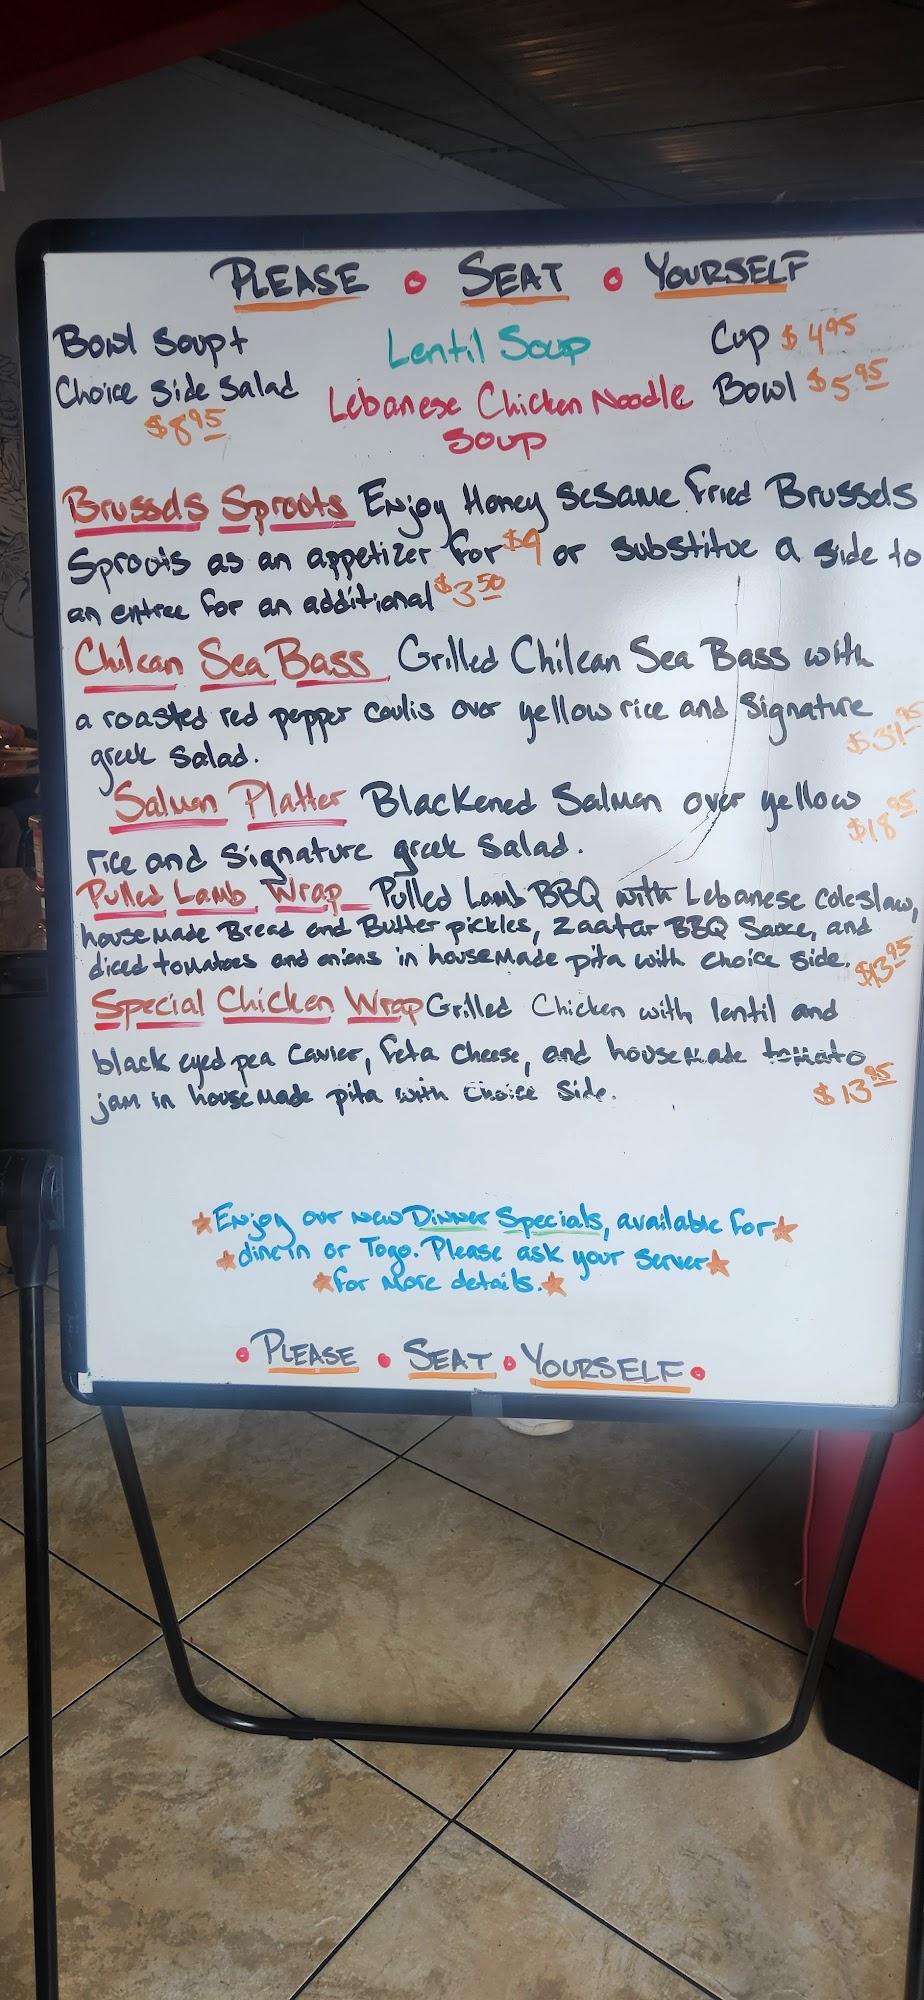 PLEASE • SEAT • YOURSELF
Bowl Soup + Lentil Soup Cup $4.95
Choice Side Salad Lebanese Chicken Noodle Bowl $5.95
$8.95 Soup
Brussels Sprouts Enjoy Honey Sesame Fried Brussels
Sprouts as an appetizer for $9 or substitue a side to
an entree for an additional $3.50
Chilean Sea Bass Grilled Chilean Sea Bass with
a roasted red pepper coulis over yellow rice and Signature
greek salad. .95
Salmon Platter Blackened Salmon over yellow $18.95
rice and Signature greek Salad.
Pulled Lamb Wrap Pulled Lamb BBQ with Lebanese coleslaw,
house made Bread and Butter pickles, Zaatar BBQ Sauce, and
diced tomatoes and onions in house made pita with choice side. $13.95
Special Chicken Wrap Grilled Chicken with lentil and
black eyed pea Cavier, feta cheese, and house made tomato
jam in house made pita with choice side. $13.95
★Enjoy our new Dinner Specials, available for★
★dine in or Togo. Please ask your server★
★for more details.★
• PLEASE • SEAT • YOURSELF •